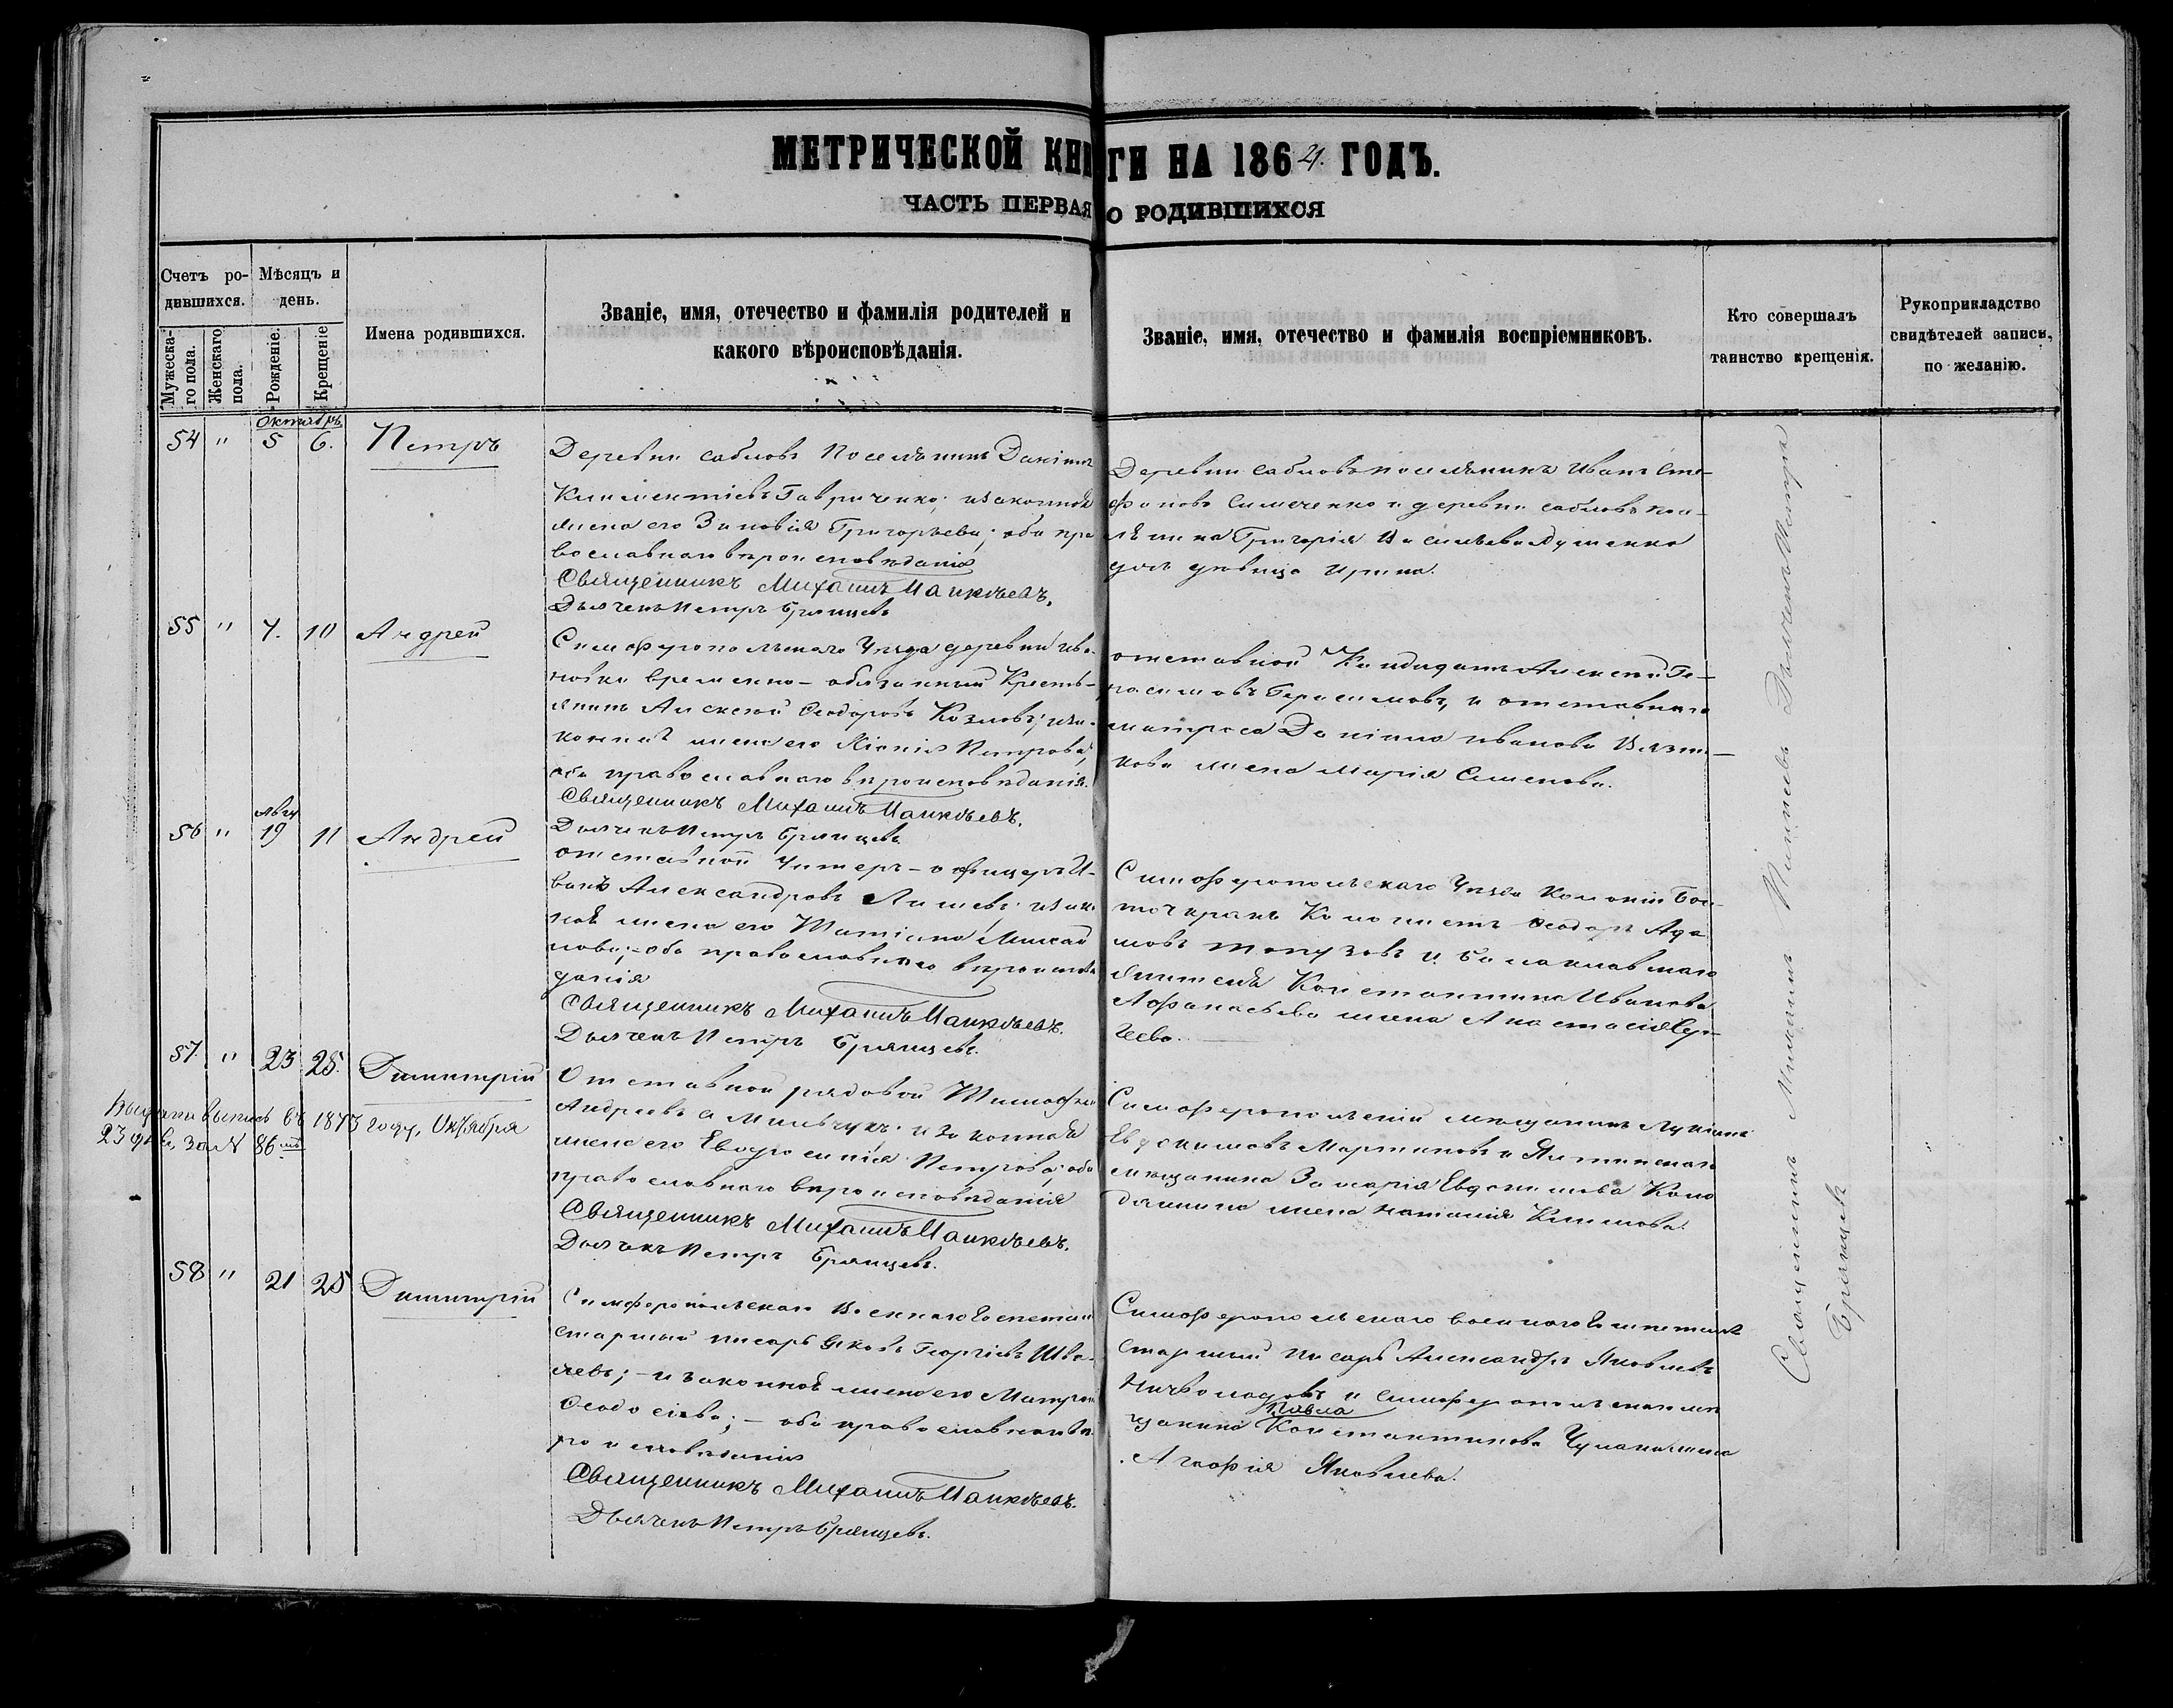 МЕТРИЧЕСКОЙ КНИГИ НА 1864. ГОДЪ.
ЧАСТЬ ПЕРВАЯ О РОДИВШИХСЯ
Счетъ ро-
дившихся.
Мѣсяцъ и
день.
Мужеска-
го пола.
Женскаго
пола.
Рожденіе.
Крещеніе
Имена родившихся.
Званіе, имя, отечество и фамилія родителей и
какого вѣроисповѣданія.
Званіе, имя, отечество и фамилія воспріемниковъ.
Кто совершалъ
таинство крещенія.
Рукоприкладство
свидѣтелей записи,
по желанію.
Октябрь
54 " 5 6. Петръ
Деревни Сабловъ Поселянинъ Даніилъ
Климентіевъ Гавриченко; и законная
жена его Зиновія Григорьева; оба пра
вославнаго вѣроисповѣданія
Священникъ Михаилъ
Дьячекъ Петръ Брянцевъ
Деревни Сабловъ поселянинъ Иванъ Сте-
фановъ Симеченко и деревни Сабловъ посе-
лянина Григорія Васильева
дочь дѣвица Ирина.
55 " 7. 10 Андрей
Симферопольскаго Уѣзда деревни Ива-
новки временно-обязанный Кресть-
янинъ Алексѣй Ѳеодоровъ Козловъ; и за-
конная жена его Хіонія Петрова;
оба православнаго вѣроисповѣданія.
Священникъ Михаилъ
Дьячекъ Петръ Брянцевъ
отставной Кандидатъ Алексѣй Ге-
расимовъ Герасимовъ, и отставнаго
матроса Даніила Иванова
кова жена Марія Семенова.
Авгу
56 " 19 11 Андрей
отставной Унтеръ-офицеръ И-
ванъ Александровъ и закон
ная жена его Татіана Михаи
лова; оба православнаго вѣроисповѣ
данія
Священникъ Михаилъ
Дьячекъ Петръ Брянцевъ.
Симферопольскаго Уѣзда Колоніи
Колонистъ Ѳеодоръ Ада
мовъ Топузовъ и Балаклавскаго
жителя Константина Иванова
Афанасьева жена Анастасія Сер-
геева.
57. " 23 25. Димитрій
Выдана выпись въ 1873 году, Октября
23 дня, за № 86
Отставной рядовой Тимофей
Андреевъ и законная
жена его Евфросинія Петрова; оба
православнаго вѣроисповѣданія
Священникъ Михаилъ
Дьячекъ Петръ Брянцевъ.
Симферопольскій мѣщанинъ Лукіанъ
Евдокимовъ Мартиновъ и Ялтинскаго
мѣщанина Захарія Евдокимова
жена Наталія Климова.
58 " 21 25 Димитрій
Симферопольскаго Военнаго Госпиталя
старшій писарь Яковъ Георгіевъ
и законная жена его Матрона
Ѳеодосіева; - оба православнаго вѣ
роисповѣданія
Священникъ Михаилъ
Дьячекъ Петръ Брянцевъ.
Симферопольскаго военнаго Госпиталя
старшій писарь Александръ Яковлевъ
и Симферопольскаго мѣ
Павла
щанина Константинова жена
Агафія Яковлева.
Священникъ Михаилъ Дьячекъ Петръ
Брянцевъ